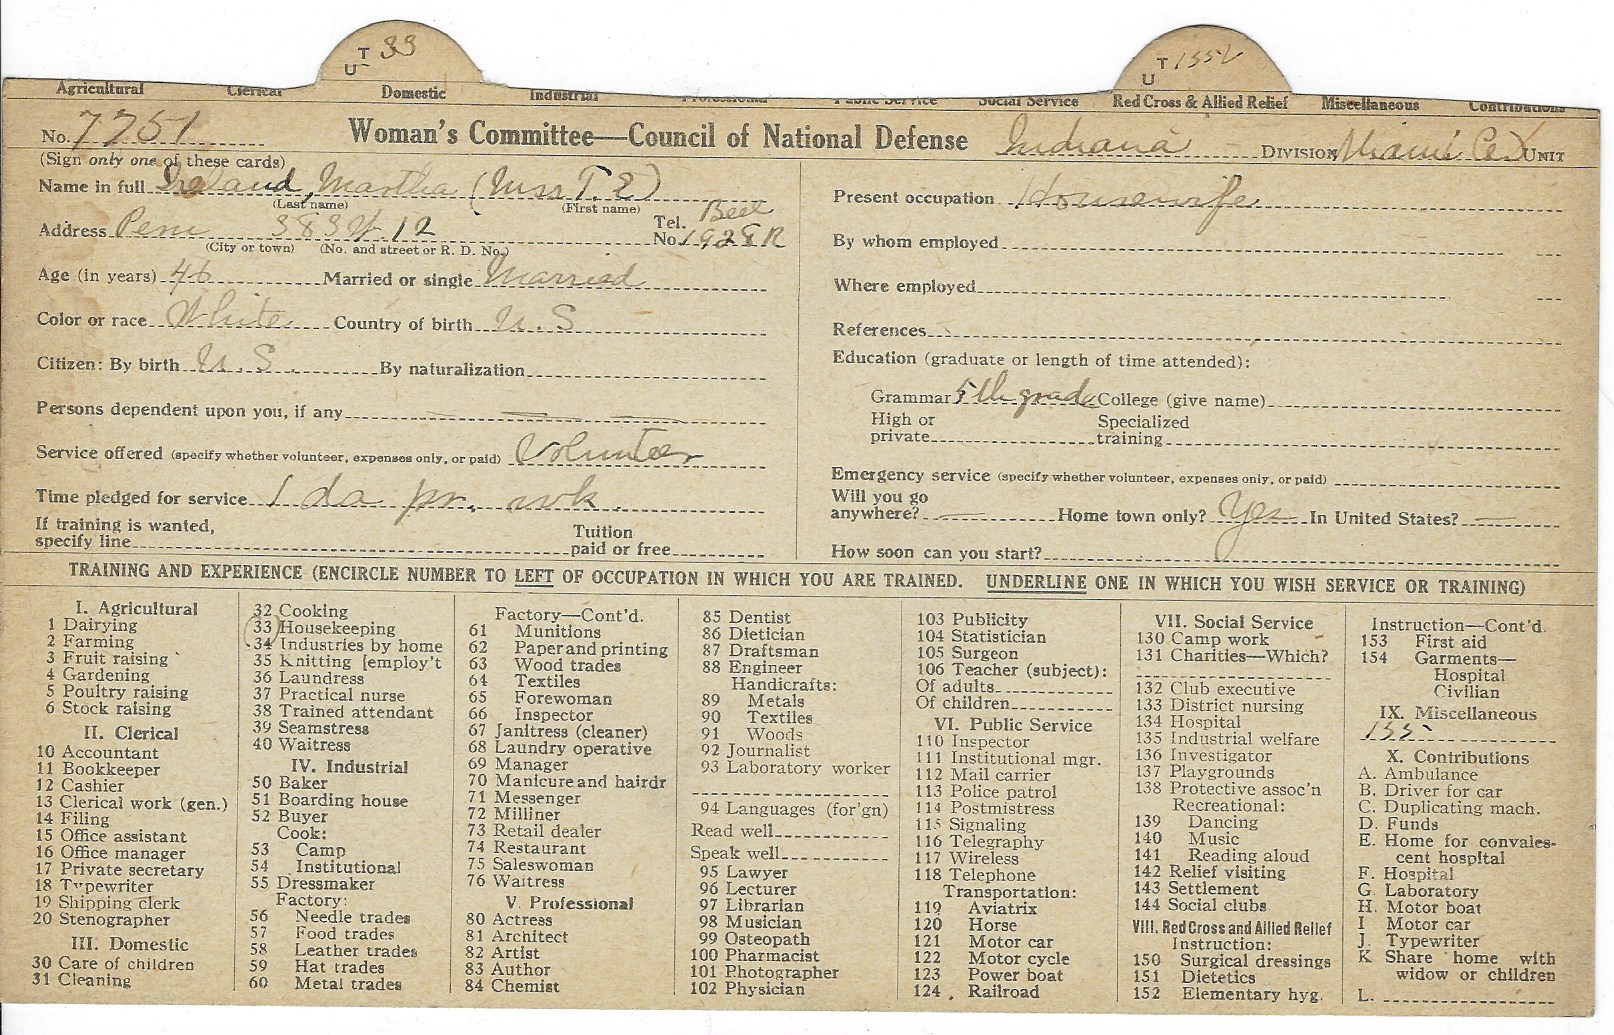 T 33
U
T 155L
U
Agricultural Clerical Domestic Industrial Professional Public Service Social Service Red Cross & Allied Relief Miscellaneous Contributions
No. 7751 Woman's Committee—Council of National Defense Indiana Division Miami Co. Unit
(Sign only one of these cards)
Name in full Ireland, Martha (Mrs. T. E)
(Last name) (First name)
Address Peru 383 W 12 Tel. No. Bell 1928R
(City or town) (No. and street or R. D. No.)
Age (in years) 46 Married or single Married
Color or race White Country of birth U. S
Citizen: By birth U. S. By naturalization
Persons dependent upon you, if any
Service offered (specify whether volunteer, expenses only, or paid) Volunteer
Time pledged for service 1 da pr. wk.
If training is wanted,
specify line Tuition paid or free
Present occupation Housewife
By whom employed
Where employed
References
Education (graduate or length of time attended):
Grammar 5th grade College (give name)
High or private Specialized training
Emergency service (specify whether volunteer, expenses only, or paid)
Will you go
anywhere? — Home town only? Yes In United States? —
How soon can you start?
TRAINING AND EXPERIENCE (ENCIRCLE NUMBER TO LEFT OF OCCUPATION IN WHICH YOU ARE TRAINED. UNDERLINE ONE IN WHICH YOU WISH SERVICE OR TRAINING)
I. Agricultural
1 Dairying
2 Farming
3 Fruit raising
4 Gardening
5 Poultry raising
6 Stock raising
II. Clerical
10 Accountant
11 Bookkeeper
12 Cashier
13 Clerical work (gen.)
14 Filing
15 Office assistant
16 Office manager
17 Private secretary
18 Typewriter
19 Shipping clerk
20 Stenographer
III. Domestic
30 Care of children
31 Cleaning
32 Cooking
33 Housekeeping
34 Industries by home
35 Knitting [employ't
36 Laundress
37 Practical nurse
38 Trained attendant
39 Seamstress
40 Waitress
IV. Industrial
50 Baker
51 Boarding house
52 Buyer
Cook:
53 Camp
54 Institutional
55 Dressmaker
Factory:
56 Needle trades
57 Food trades
58 Leather trades
59 Hat trades
60 Metal trades
Factory—Cont'd.
61 Munitions
62 Paper and printing
63 Wood trades
64 Textiles
65 Forewoman
66 Inspector
67 Janitress (cleaner)
68 Laundry operative
69 Manager
70 Manicure and hairdr
71 Messenger
72 Milliner
73 Retail dealer
74 Restaurant
75 Saleswoman
76 Waitress
V. Professional
80 Actress
81 Architect
82 Artist
83 Author
84 Chemist
85 Dentist
86 Dietician
87 Draftsman
88 Engineer
Handicrafts:
89 Metals
90 Textiles
91 Woods
92 Journalist
93 Laboratory worker
94 Languages (for'gn)
Read well
Speak well
95 Lawyer
96 Lecturer
97 Librarian
98 Musician
99 Osteopath
100 Pharmacist
101 Photographer
102 Physician
103 Publicity
104 Statistician
105 Surgeon
106 Teacher (subject):
Of adults
Of children
VI. Public Service
110 Inspector
111 Institutional mgr.
112 Mail carrier
113 Police patrol
114 Postmistress
115 Signaling
116 Telegraphy
117 Wireless
118 Telephone
Transportation:
119 Aviatrix
120 Horse
121 Motor car
122 Motor cycle
123 Power boat
124 Railroad
VII. Social Service
130 Camp work
131 Charities—Which?
132 Club executive
133 District nursing
134 Hospital
135 Industrial welfare
136 Investigator
137 Playgrounds
138 Protective assoc'n
Recreational:
139 Dancing
140 Music
141 Reading aloud
142 Relief visiting
143 Settlement
144 Social clubs
VIII. Red Cross and Allied Relief
Instruction:
150 Surgical dressings
151 Dietetics
152 Elementary hyg.
Instruction—Cont'd.
153 First aid
154 Garments—
Hospital
Civilian
IX. Miscellaneous
155
X. Contributions
A. Ambulance
B. Driver for car
C. Duplicating mach.
D. Funds
E. Home for convales-
cent hospital
F. Hospital
G. Laboratory
H. Motor boat
I Motor car
J. Typewriter
K Share home with
widow or children
L.